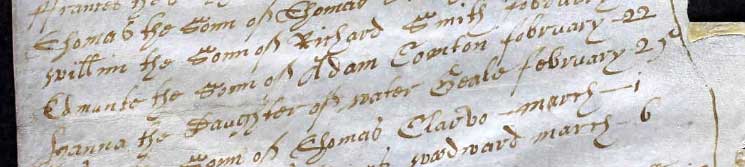 Thomas the Sonn of Thomas
Willim the Sonn of Richard Smith february
Edmunte the Sonn of Adam Cowton february 22
Joanna the Daughter of water Beale february 25
Sonn of Thomas Clarvo march 1
wodward march 6